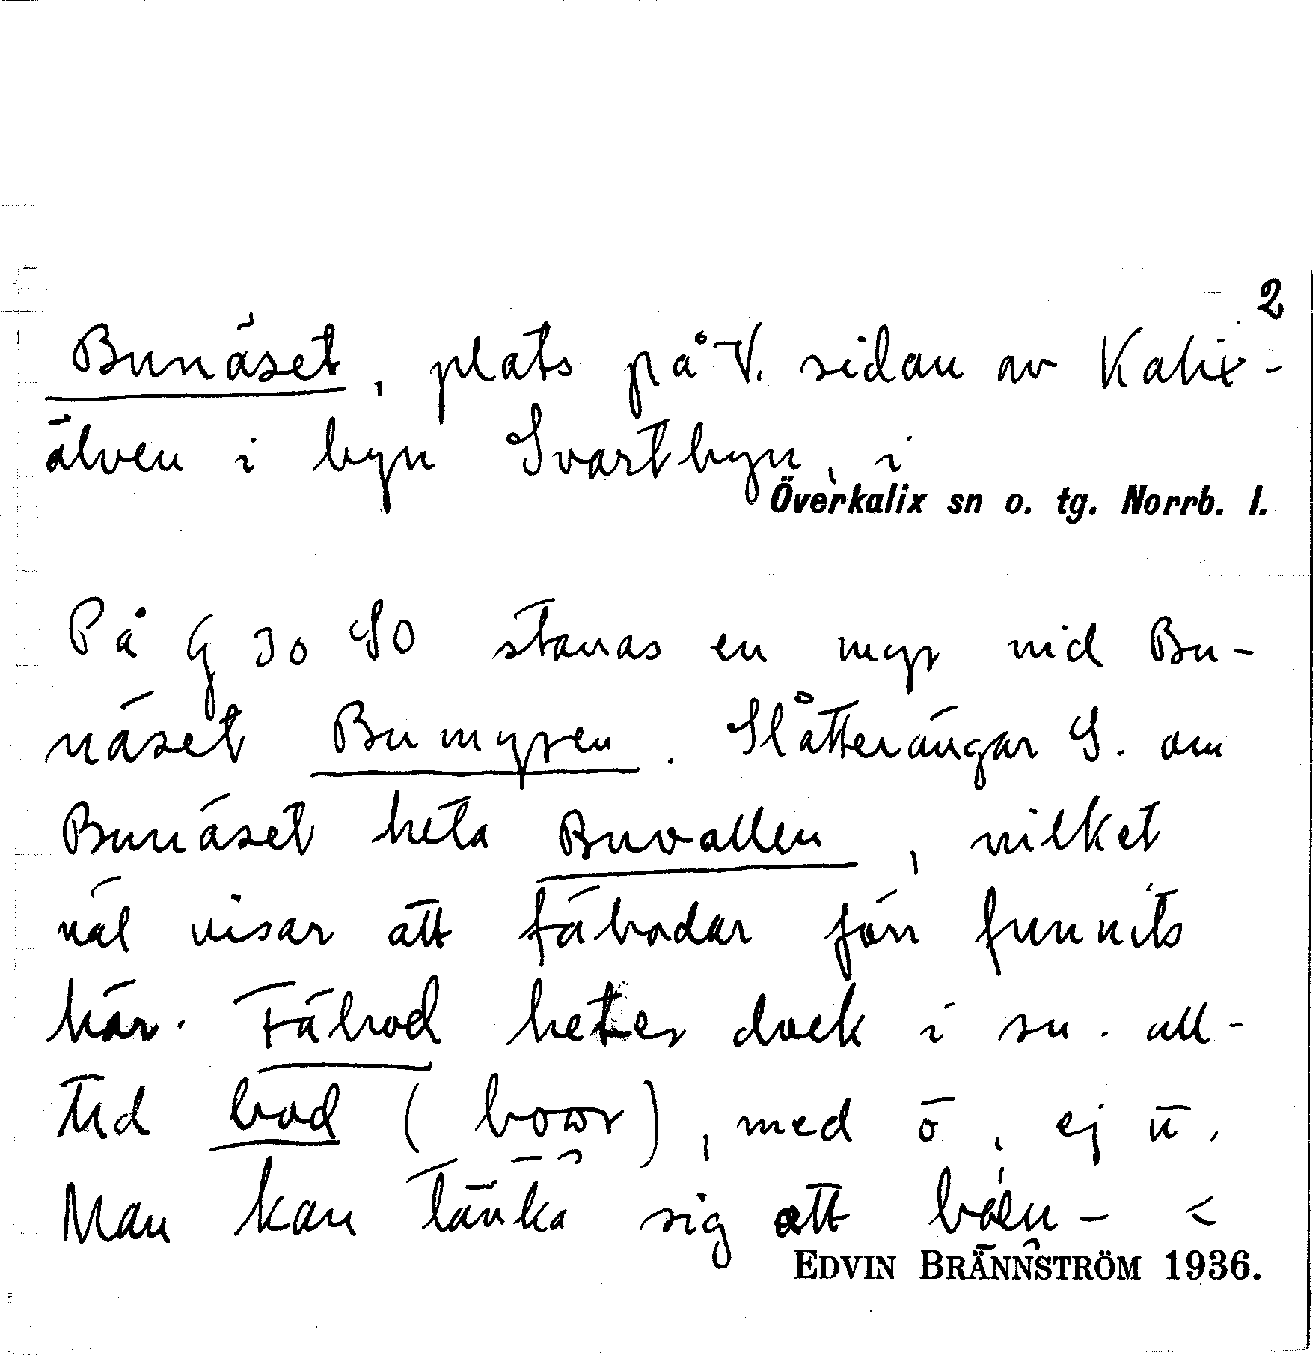 2
Bunäset, plats på V. sidan av Kalix-
älven i byn Svartbyn, i
Överkalix sn o. tg. Norrb. l.
På G 30 SO stavas en myr vid Bu-
näset Bumyren. Slåtterängar S. om
Bunäset heta Buvallen, vilket
väl visar att fäbodar förr funnits
här. Fäbod heter dock i sn. all-
tid bod ( ), med ō, ej ū.
Man kan tänka sig att <
EDVIN BRÄNNSTRÖM 1936.